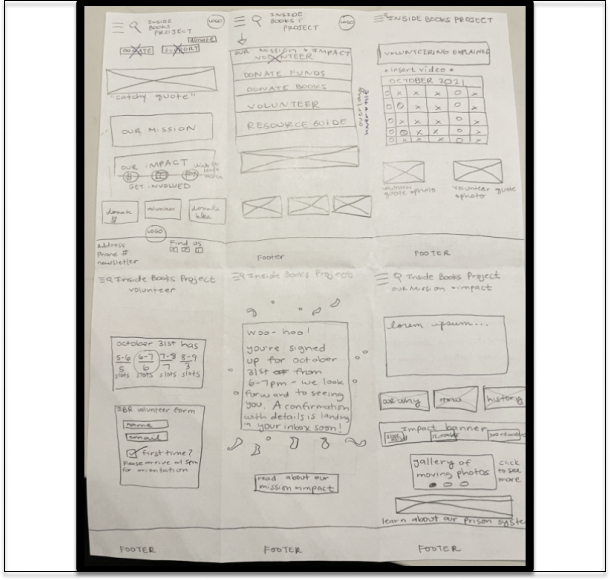 INSIDE BOOKS PROJECT
LOGO
DONATE
DONATE
SUPPORT
"catchy quote"
OUR MISSION
OUR IMPACT
GET INVOLVED
donate
#
volunteer
donate
LOGO
Address
Phone #
newsletter
Find us
INSIDE
BOOKS
PROJECT
LOGO
OUR MISSION + IMPACT
VOLUNTEER
DONATE FUNDS
DONATE BOOKS
VOLUNTEER
RESOURCE GUIDE
Footer
INSIDE BOOKS PROJECT
VOLUNTEERING EXPLAINER
* insert video *
OCTOBER 2021
volunteer quote + photo
volunteer quote
+ photo
FOOTER
Inside Books Project
volunteer
october 31st has
5-6 6-7 7-8 8-9
5 6 7 3
slots slots slots slots
IBP volunteer form
name
email
First time?
Please arrive at 5pm
for orientation
FOOTER
Inside Books Project
woo-hoo!
you're signed
up for october
31st from
6-7pm - we look
forward to seeing
you. A confirmation
with details is landing
in your inbox soon!
read about our
mission + impact
FOOTER
Inside Books Project
our mission + impact
lorem ipsum...
our why
history
Impact banner
gallery of
moving photos
click
to see
more
learn about our prison system
FOOTER